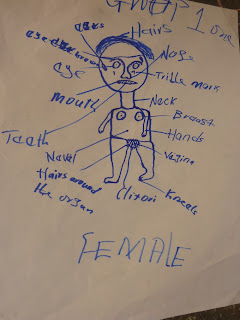 GROUP 1 one
Hairs
eye
Nose
Trible mark
mouth
Neck
Breast
Teath
Hands
Navel
Vagina
Hairs around
the organ
Clitori
Kneels
FEMALE